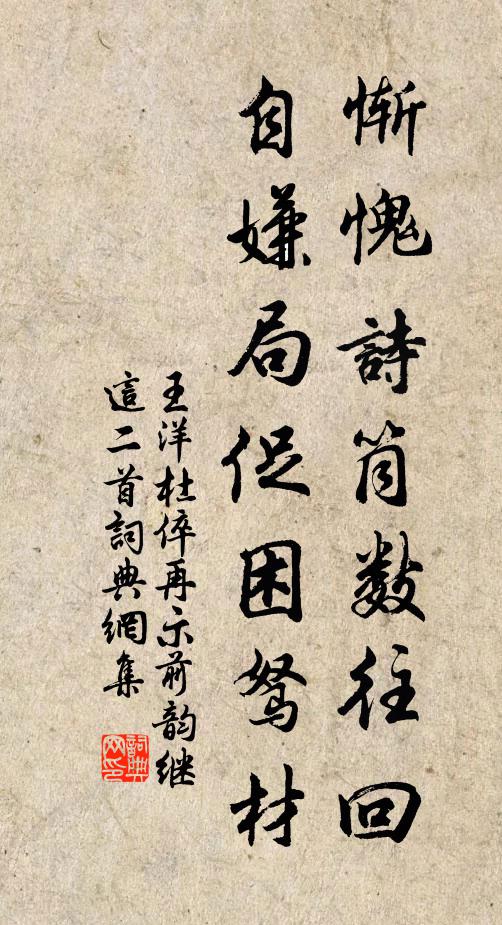 慚愧詩筒數往回
自嫌局促困駑材
王洋杜倅再示前韵継
這二首詞典網集
詞典
网印